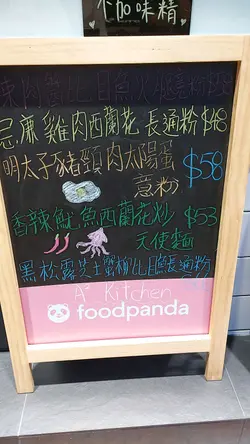 不加味精
忌廉雞肉西蘭花長通粉$48
明太子豬頸肉太陽蛋
$58
意粉
香辣魷魚西蘭花炒$53
天使麵
黑松露芝士蜜柚比目魚長通粉
A+ Kitchen
foodpanda